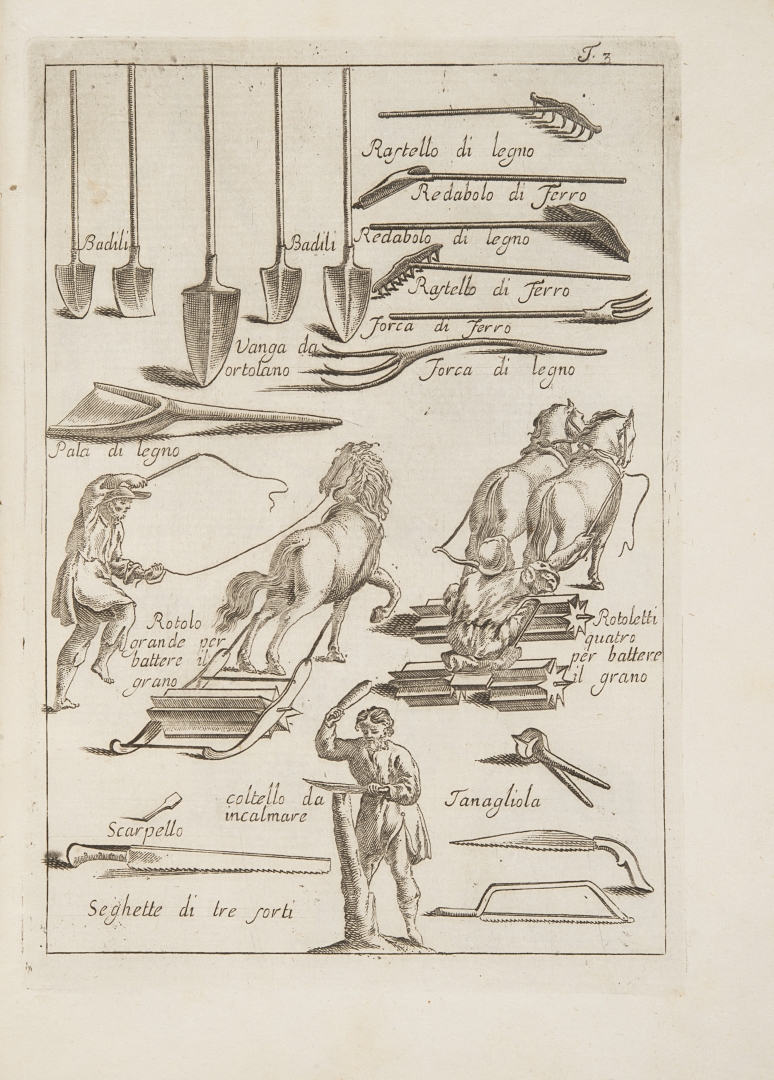 T. 3
Rastello di legno
Redabolo di Ferro
Badili
Badili
Redabolo di legno
Rastello di Ferro
Forca di Ferro
Vanga da
ortolano
Forca di legno
Pala di legno
Rotolo
grande per
battere il
grano
Rotoletti
quatro
per battere
il grano
coltello da
incalmare
Tanagliola
Scarpello
Seghette di tre sorti